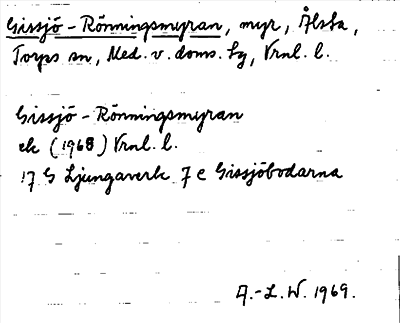 Gissjö-Rönningsmyran, myr, Ålsta,
Torps sn, Med. v. doms. tg, Vrnl. l.
Gissjö-Rönningsmyran
ek (1968) Vrnl. l.
17 G Ljungaverk 7 e Gissjöbodarna
A.-L. W. 1969.